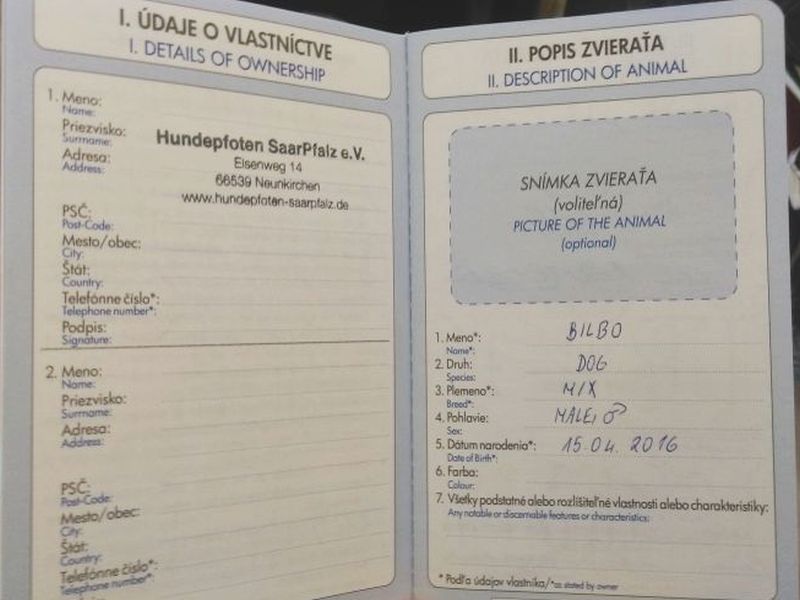 I. ÚDAJE O VLASTNÍCTVE
I. DETAILS OF OWNERSHIP
1. Meno:
Name:
Priezvisko:
Surname:
Adresa:
Address:
Hundepfoten SaarPfalz e.V.
Eisenweg 14
66539 Neunkirchen
www.hundepfoten-saarpfalz.de
PSČ:
Post-Code:
Mesto/obec:
City:
Štát:
Country:
Telefónne číslo*:
Telephone number*:
Podpis:
Signature:
2. Meno:
Name:
Priezvisko:
Surname:
Adresa:
Address:
PSČ:
Post-Code:
Mesto/obec:
City:
Štát:
Country:
Telefónne číslo*:
Telephone number*:
II. POPIS ZVIERAŤA
II. DESCRIPTION OF ANIMAL
SNÍMKA ZVIERAŤA
(voliteľná)
PICTURE OF THE ANIMAL
(optional)
1. Meno*: BILBO
Name*:
2. Druh: DOG
Species:
3. Plemeno*: MIX
Breed*:
4. Pohlavie: MALE, ♂
Sex:
5. Dátum narodenia*: 15.04.2016
Date of Birth*:
6. Farba:
Colour:
7. Všetky podstatné alebo rozlíšiteľné vlastnosti alebo charakteristiky:
Any notable or discernable features or characteristics:
* Podľa údajov vlastníka/*as stated by owner